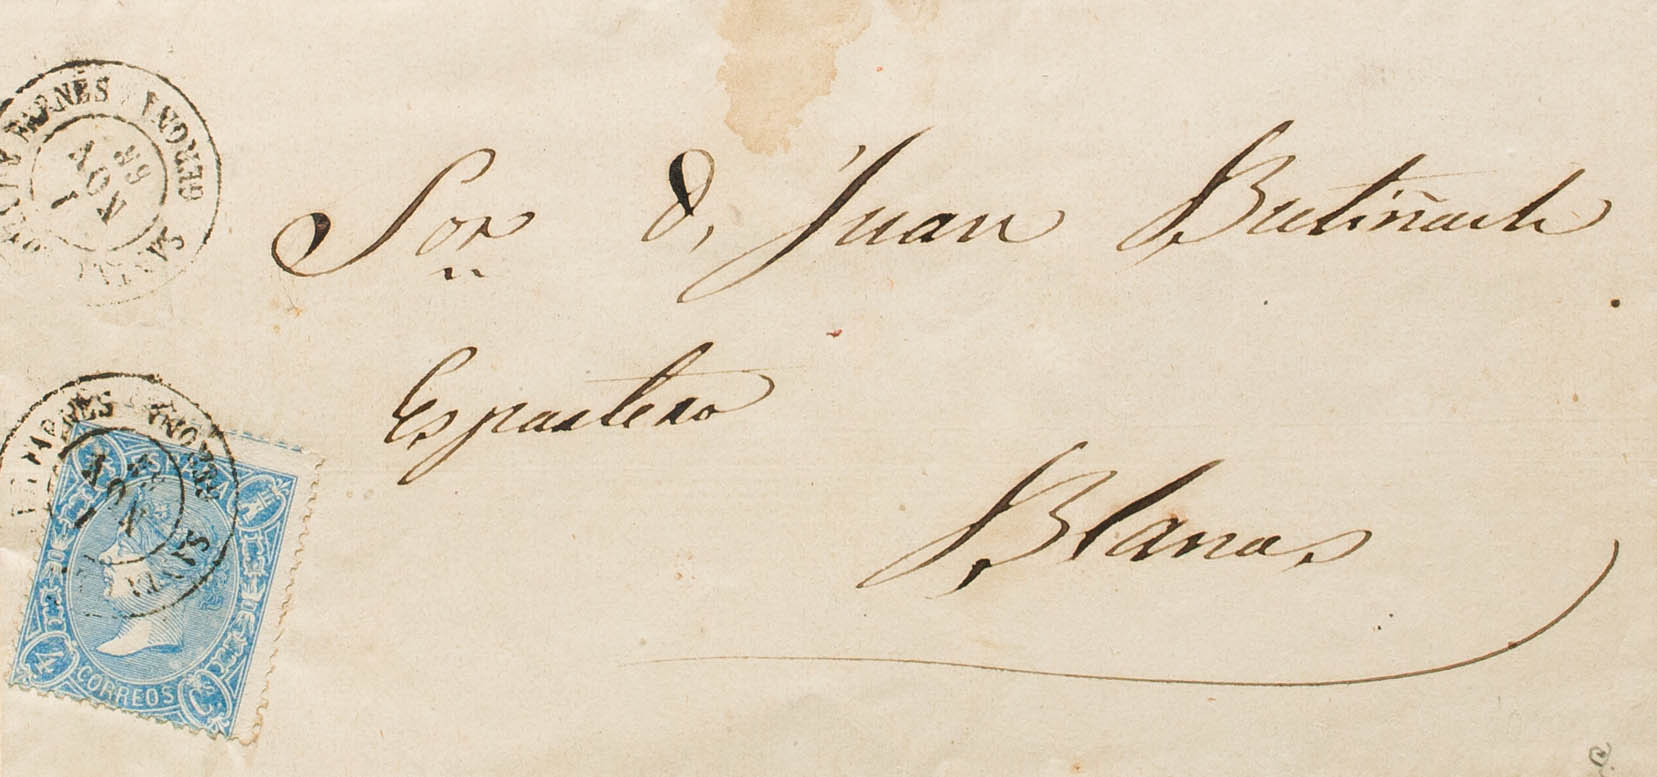 SANTA COLOMA DE FARNÉS GERONA
1 NOV 65
Sor D, Juan Butiñach
Espartero
Blanas
ESPAÑA
4 Cs
CORREOS